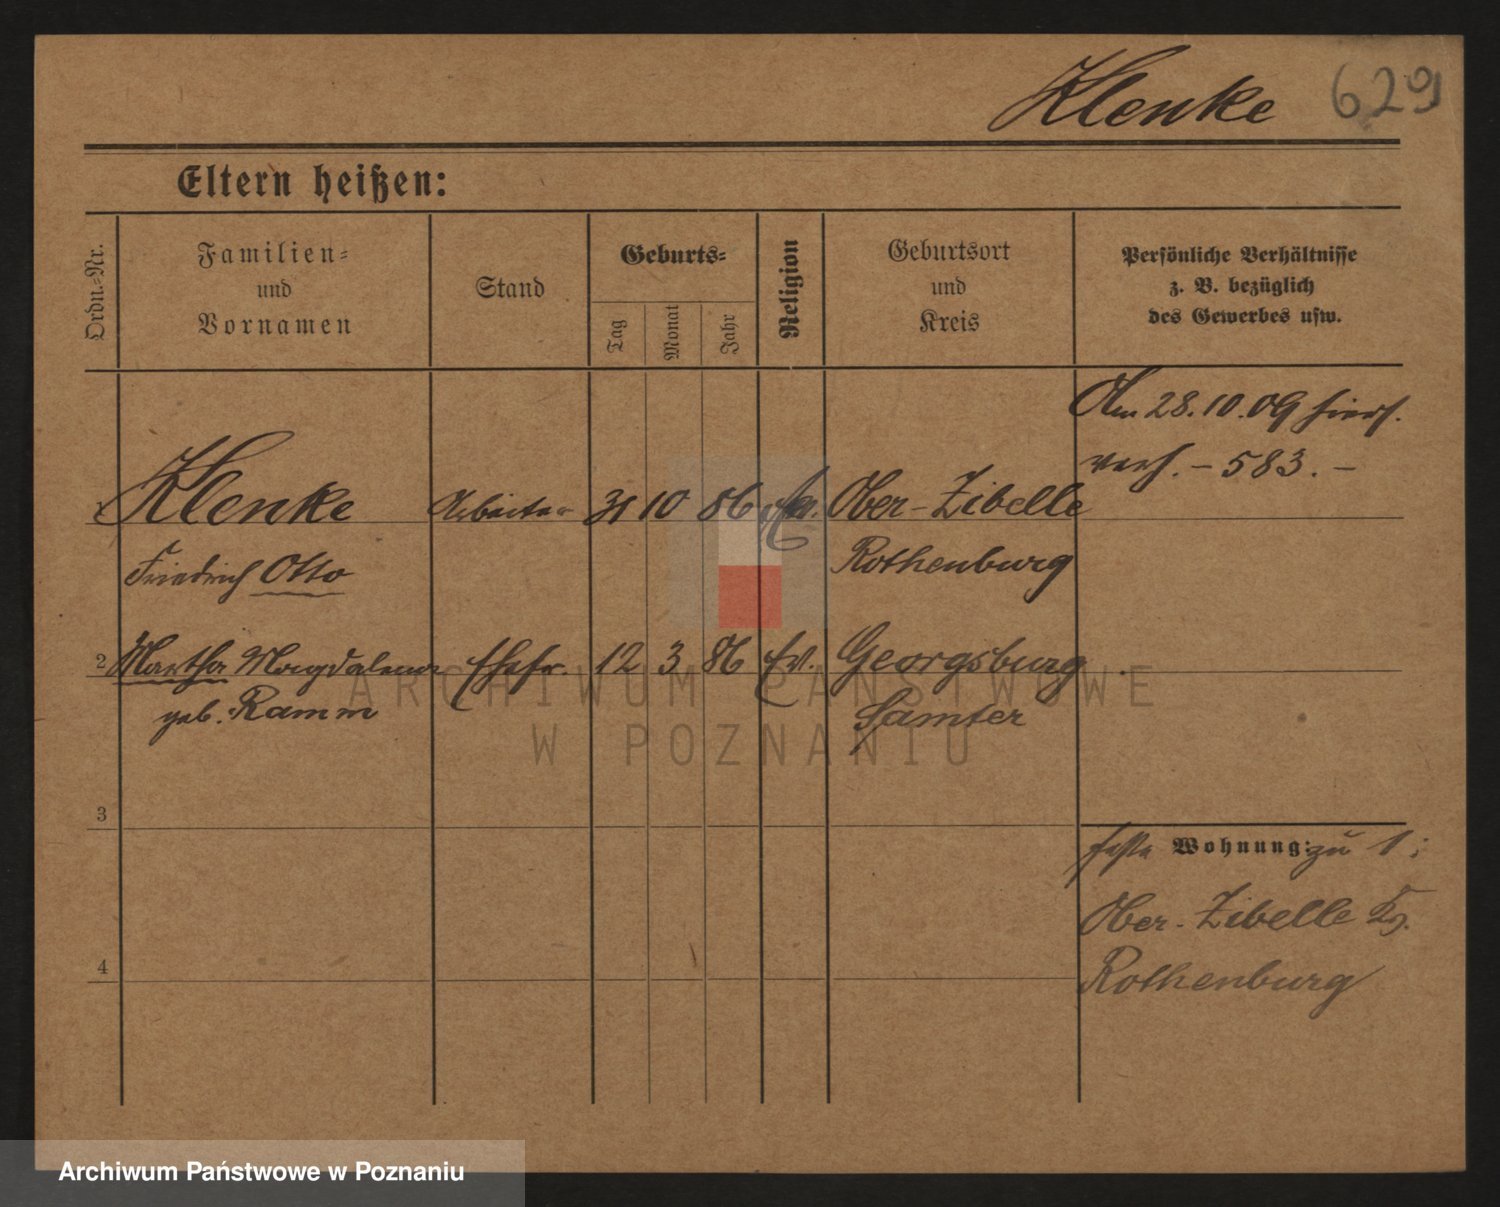 Klenke 629
Eltern heißen:
Ordn.-Nr.
Familien-
und
Vornamen
Stand
Geburts-
Tag
Monat
Jahr
Religion
Geburtsort
und
Kreis
Persönliche Verhältnisse
z. B. bezüglich
des Gewerbes usw.
Am 28.10.09 hiers.
verh. – 583. –
1 Klenke Arbeiter 31 10 86 Ev. Ober-Zibelle
Friedrich Otto Rothenburg
2 Martha Magdalena Ehefr. 12 3 86 Ev. Georgsburg
geb. Ramm Samter
ARCHIWUM PAŃSTWOWE
W POZNANIU
3
feste Wohnung: zu 1:
Ober-Zibelle Kr.
4
Rothenburg
Archiwum Państwowe w Poznaniu